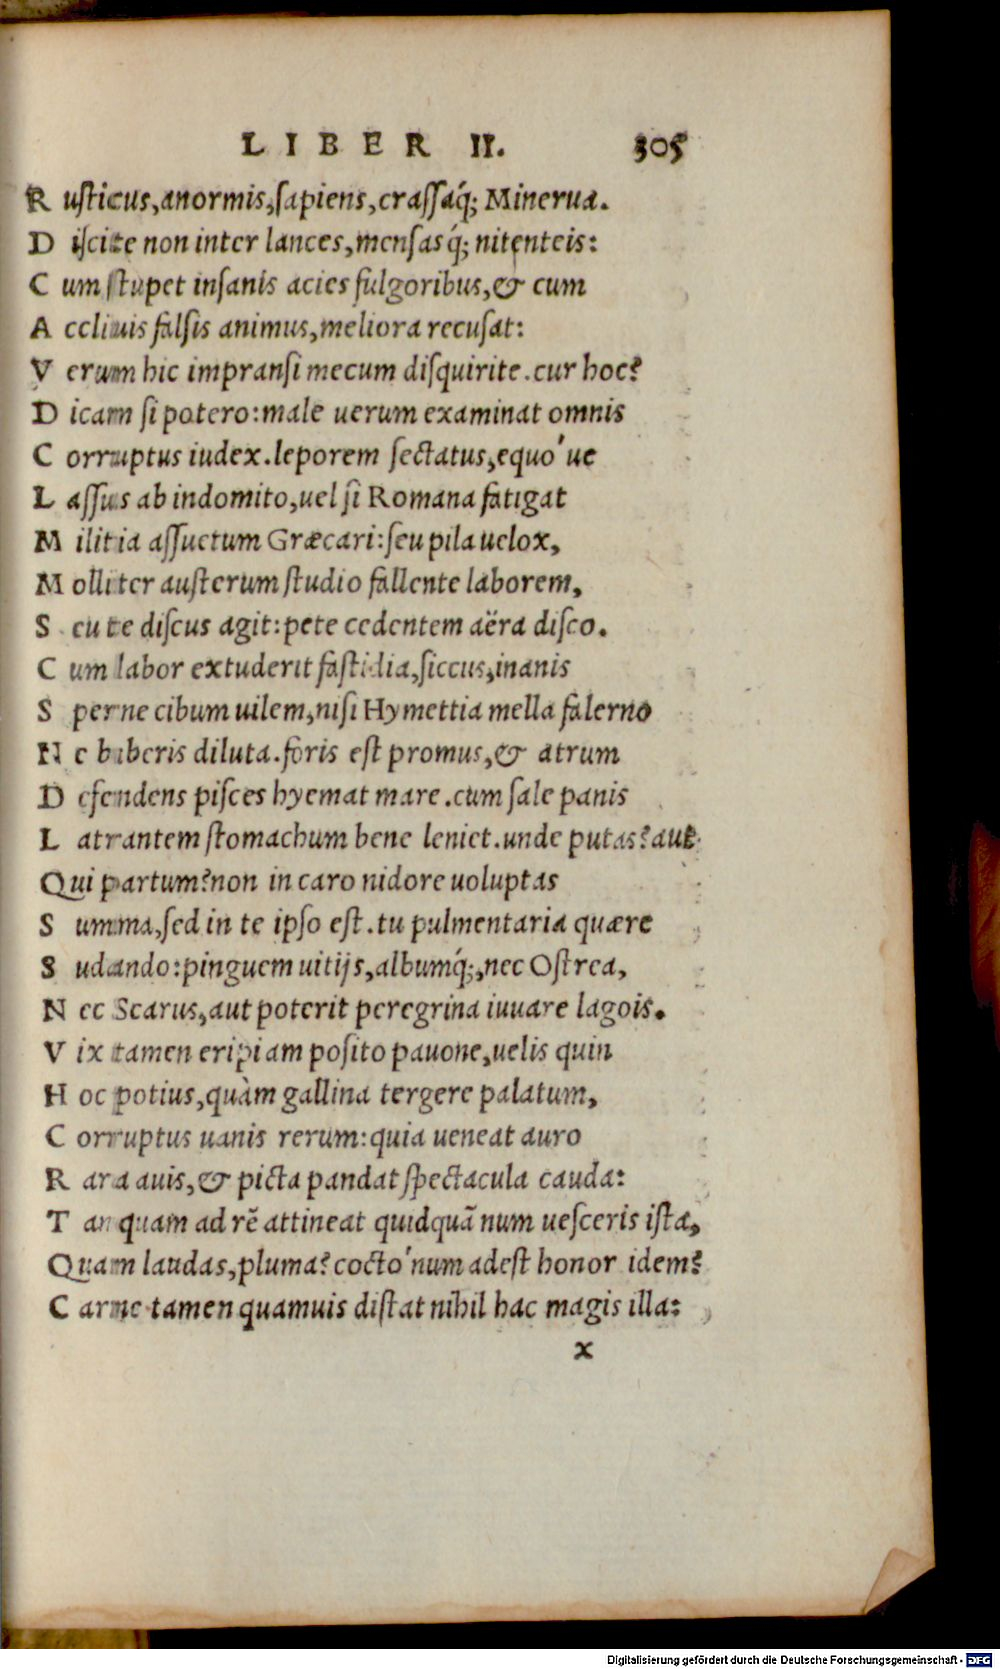 LIBER II. 305
Rusticus, anormis, sapiens, crassaq́; Minerua.
Discite non inter lances, mensasq́; nitenteis:
Cum stupet insanis acies fulgoribus, & cum
Accliuis falsis animus, meliora recusat:
Verum hic impransi mecum disquirite. cur hoc?
Dicam si potero: male uerum examinat omnis
Corruptus iudex. leporem sectatus, equó ue
Lassus ab indomito, uel si Romana fatigat
Militia assuetum Græcari: seu pila uelox,
Molliter austerum studio fallente laborem,
Seu te discus agit: pete cedentem aëra disco.
Cum labor extuderit fastidia, siccus, inanis
Sperne cibum uilem, nisi Hymettia mella falerno
Ne biberis diluta. foris est promus, & atrum
Defendens pisces hyemat mare. cum sale panis
Latrantem stomachum bene leniet. unde putas? aut
Qui partum? non in caro nidore uoluptas
Summa, sed in te ipso est. tu pulmentaria quære
Sudando: pinguem uitijs, albumq́;, nec Ostrea,
Nec Scarus, aut poterit peregrina iuuare lagois.
Vix tamen eripiam posito pauone, uelis quin
Hoc potius, quàm gallina tergere palatum,
Corruptus uanis rerum: quia ueneat auro
Rara auis, & picta pandat spectacula cauda:
Tanquam ad rẽ attineat quidquã num uesceris ista,
Quam laudas, pluma? coctó num adest honor idem?
Carne tamen quamuis distat nihil hac magis illa:
x
Digitalisierung gefördert durch die Deutsche Forschungsgemeinschaft - DFG